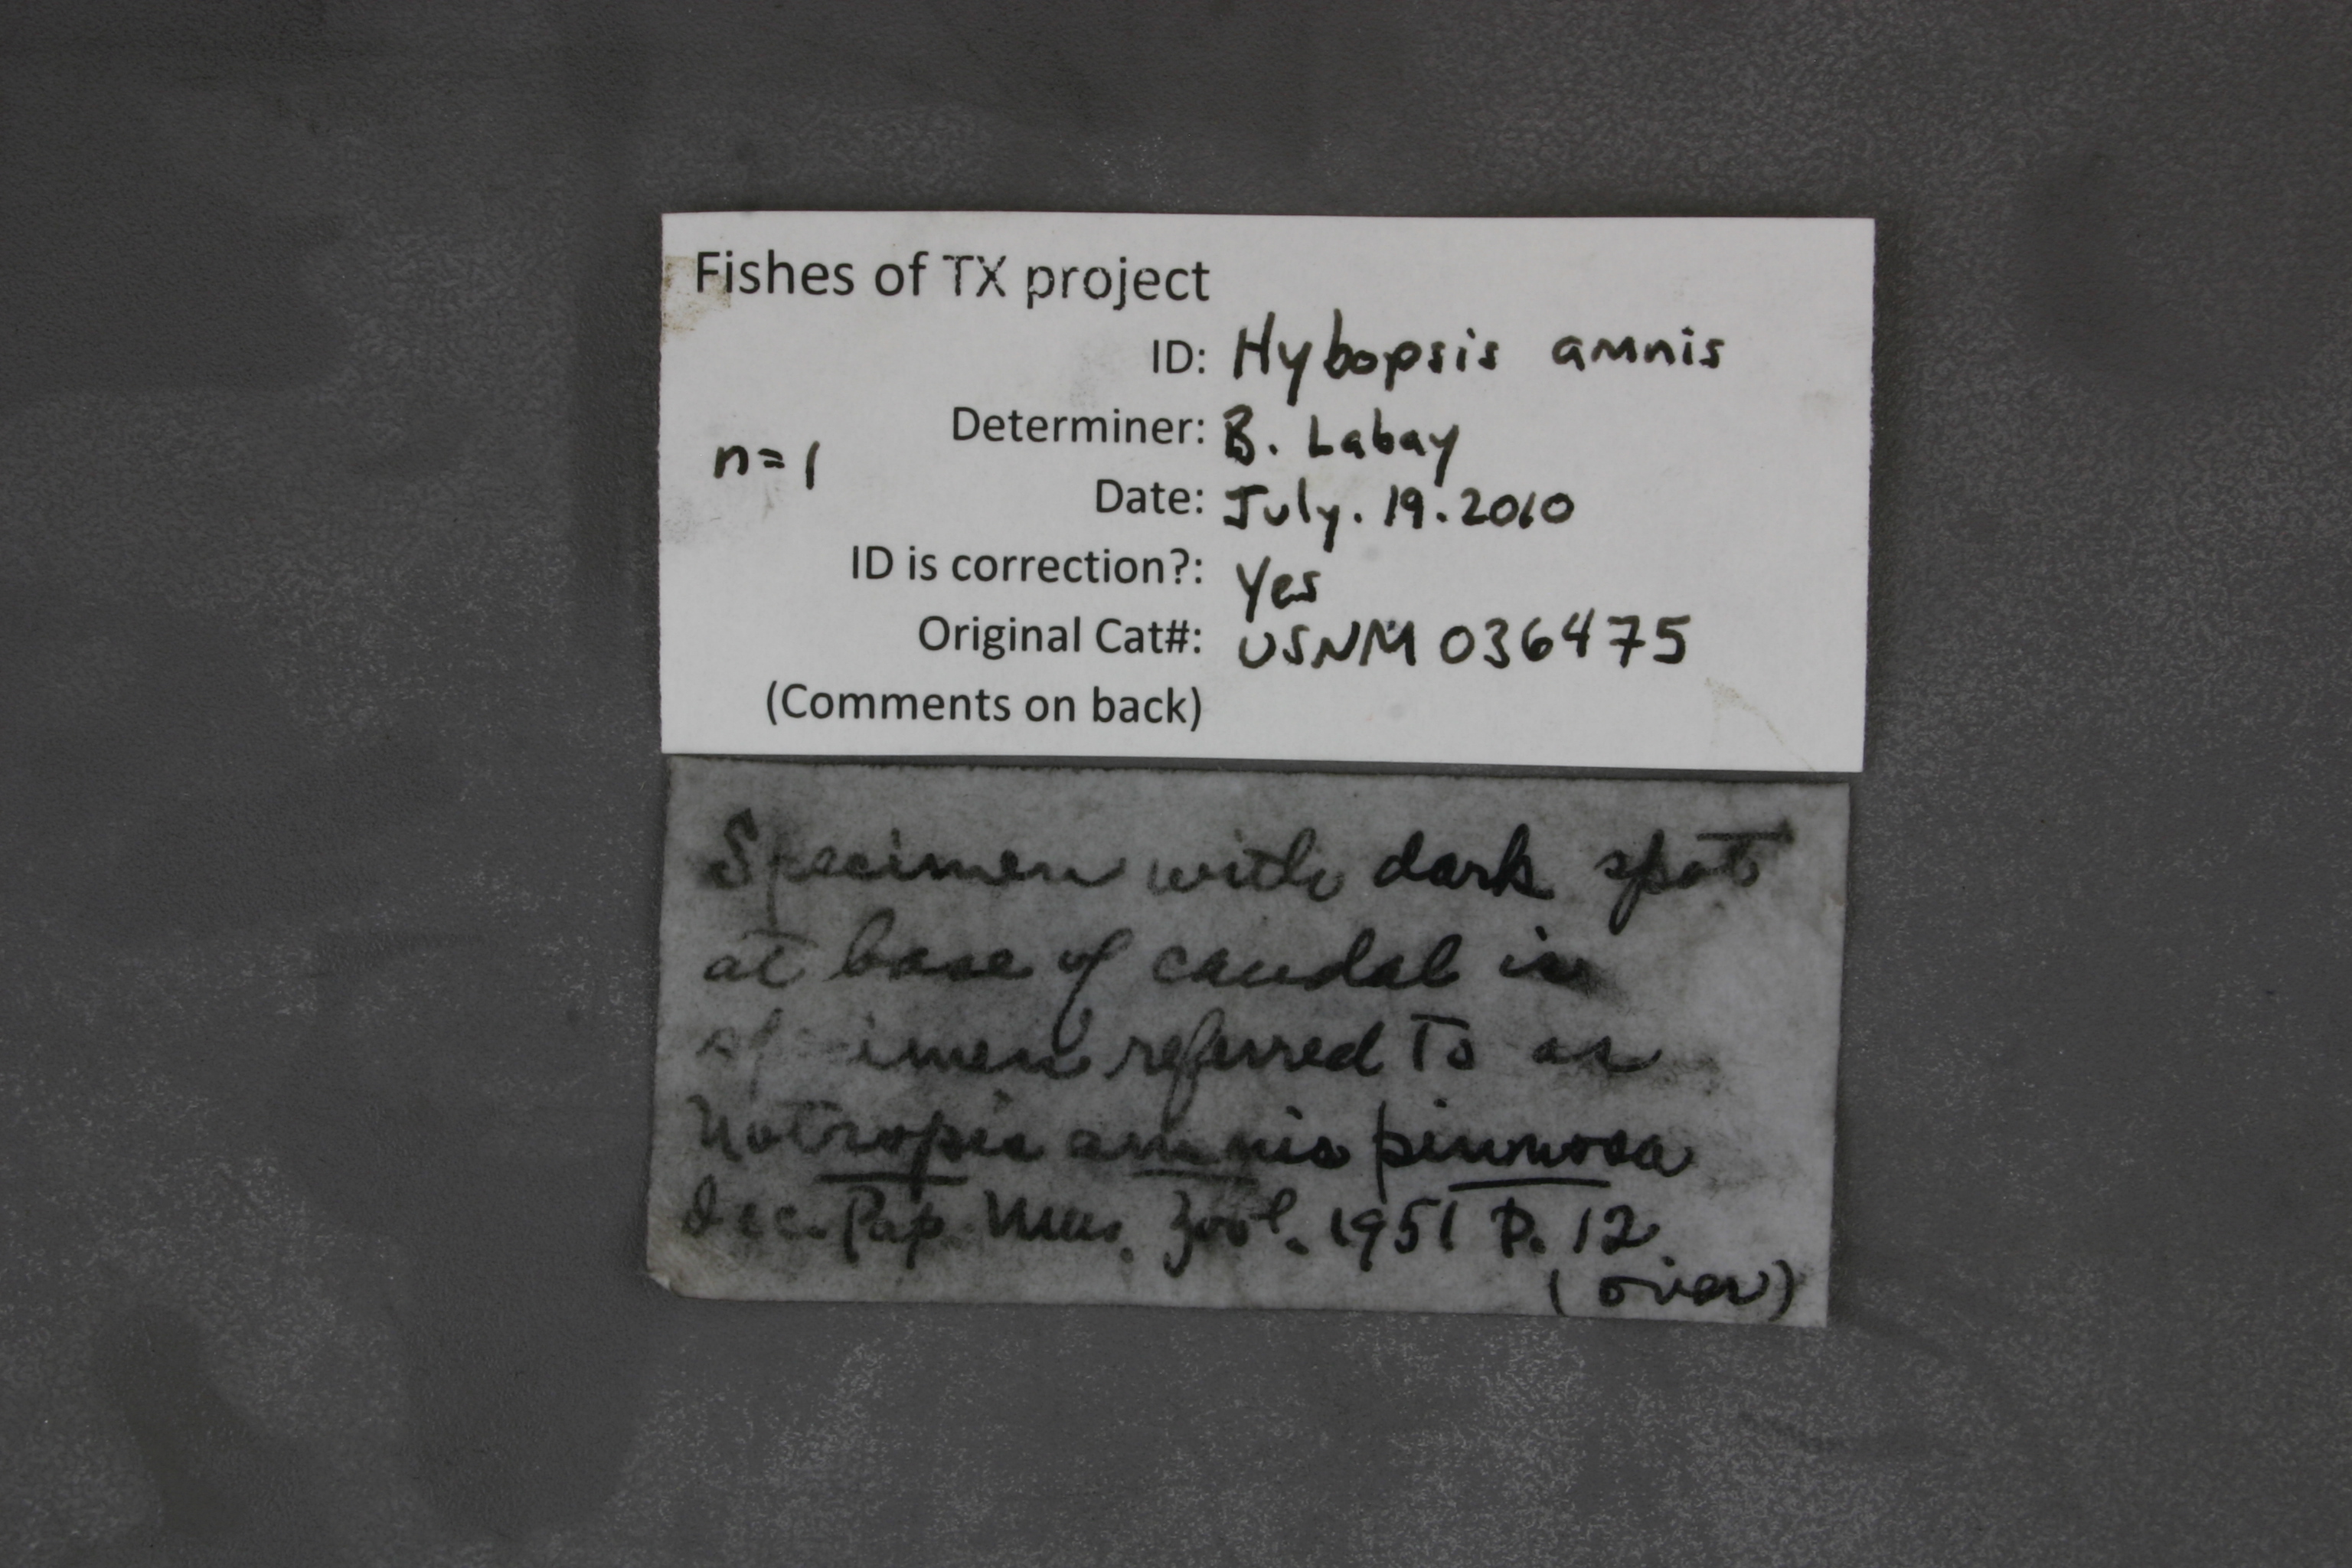 Fishes of TX project
ID: Hybopsis amnis
Determiner: B. Labay
n=1
Date: July. 19. 2010
ID is correction?: Yes
Original Cat#: USNM 036475
(Comments on back)
Specimen with dark spot
at base of caudal is
specimen referred to as
Notropis amnis pinnosa
Occ. Pap. Mus. Zool. 1951 P. 12.
(over)